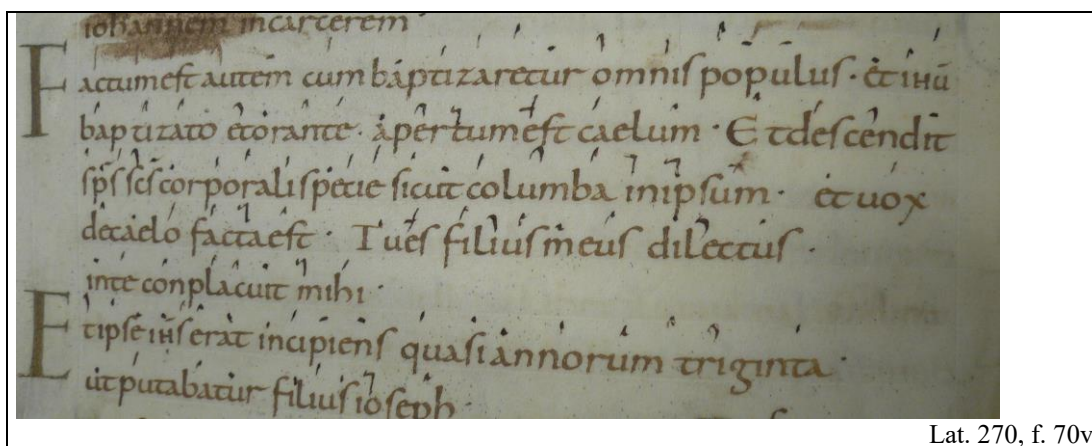 iohannem incarcerem
Factum est autem cum baptizaretur omnis populus · et ihū
baptizato et orante · apertum est caelum · Et descendit
sp̄s sc̄s corporali specie sicut columba in ipsum · et uox
de caelo facta est · Tu es filius meus dilectus ·
in te conplacuit mihi ·
Et ipse ihs̄ erat incipiens quasi annorum triginta ·
ut putabatur filius ioseph ·
Lat. 270, f. 70v